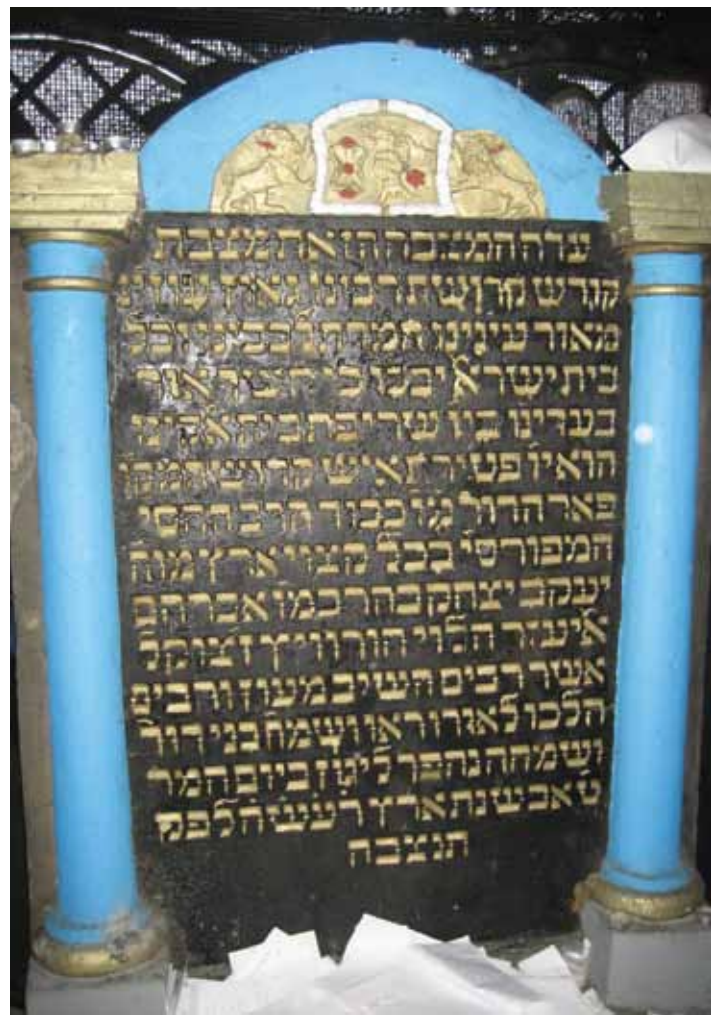 עדה המצבה הזאת מצבת
קודש קדושת רבינו גאון עוזינו
מאור עינינו חמדת לבבינו וכל
בית ישראל יבכו כי אור
בעדינו ביו שריפת בית אלקינו
הוא יו פטירת איש קדוש
פאר הדור מו כבוד הרב החסי
המפורסי בכל קצוי ארץ מוה
יעקב יצחק בהר כמו אברהם
אליעזר הלוי הורוויץ זצוקל
אשר רבים השיב מעוז ורבים
הלכו לאורו ראו ושמחו בני דור
ושמחה נהפך ליגון ביום המר
ט אב שנת ארץ רעשה לפק
תנצבה